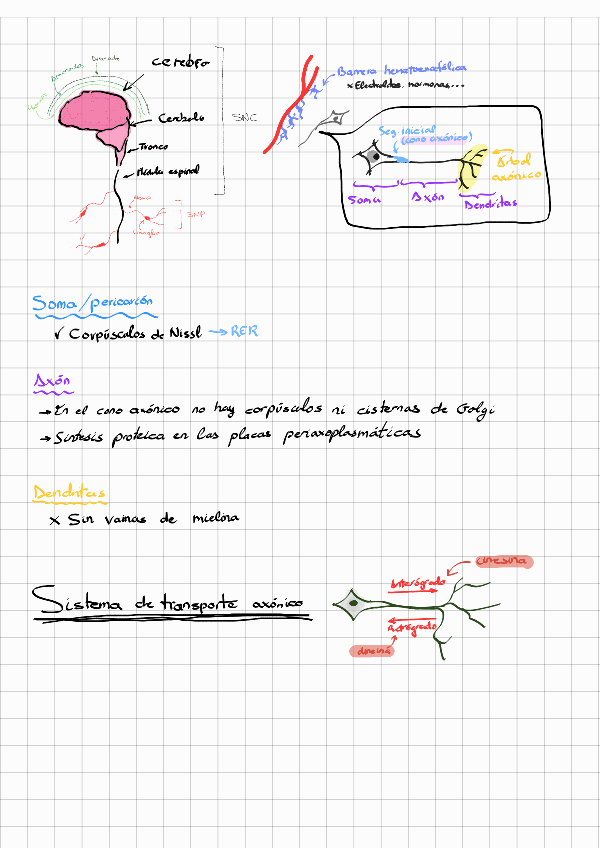 Cerebro
Cerebelo
Tronco
Médula espinal
SNC
SNP
Barrera hematoencefálica
x Electrolitos, hormonas...
Seg. inicial
(cono axónico)
Árbol
axónico
Soma
Axón
Dendritas
Soma/pericarión
✓ Corpúsculos de Nissl → RER
Axón
→ En el cono axónico no hay corpúsculos ni cisternas de Golgi
→ Síntesis proteica en las placas periaxoplasmáticas
Dendritas
x Sin vainas de mielina
Sistema de transporte axónico
cinesina
Anterógrado
Retrógrado
dineína